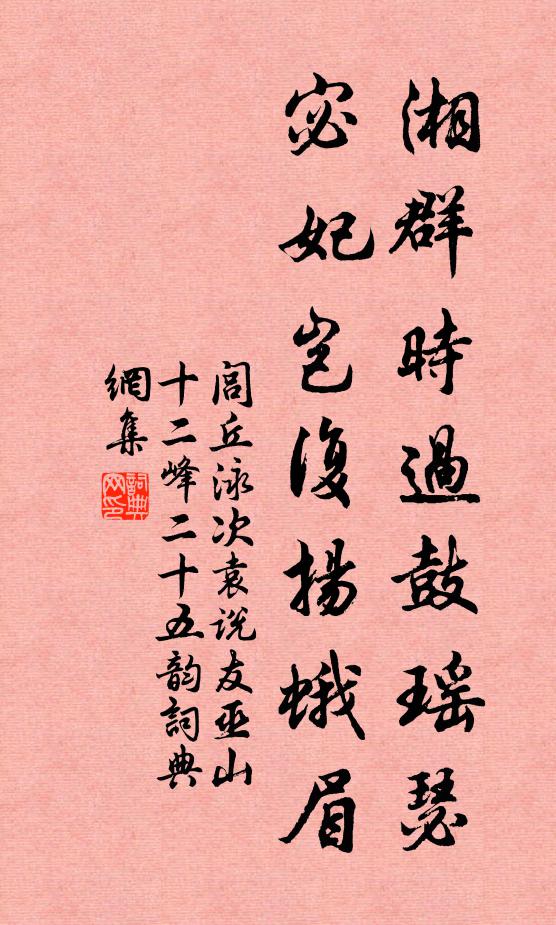 湘群時過鼓瑤瑟
宓妃豈復揚蛾眉
閭丘泳次袁说友巫山
十二峰二十五韵詞典
網集
詞典
网印